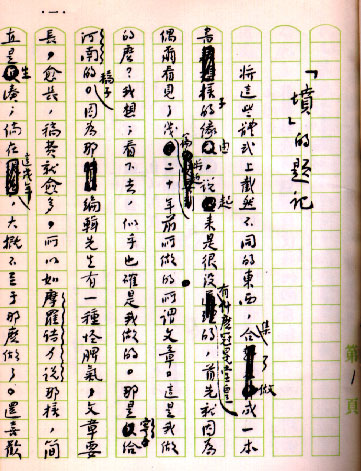 一
「墳」的題記
將這些體式上截然不同的東西,集合了做成一本
書樣子的緣由,說起來是很没有什麽冠冕堂皇的,首先就因為
偶爾看見了幾篇將近二十年前所做的所謂文章。這是我做
的麽?我想;看下去,似乎也確是我做的。那是寄給
河南的稿子;因為那編輯先生有一種怪脾氣,文章要
長,愈長,稿費就愈多。所以如摩羅詩力說那樣,簡
直是生湊;倘在這幾年,大概不至于那麽做了。還喜歡
第 1 頁